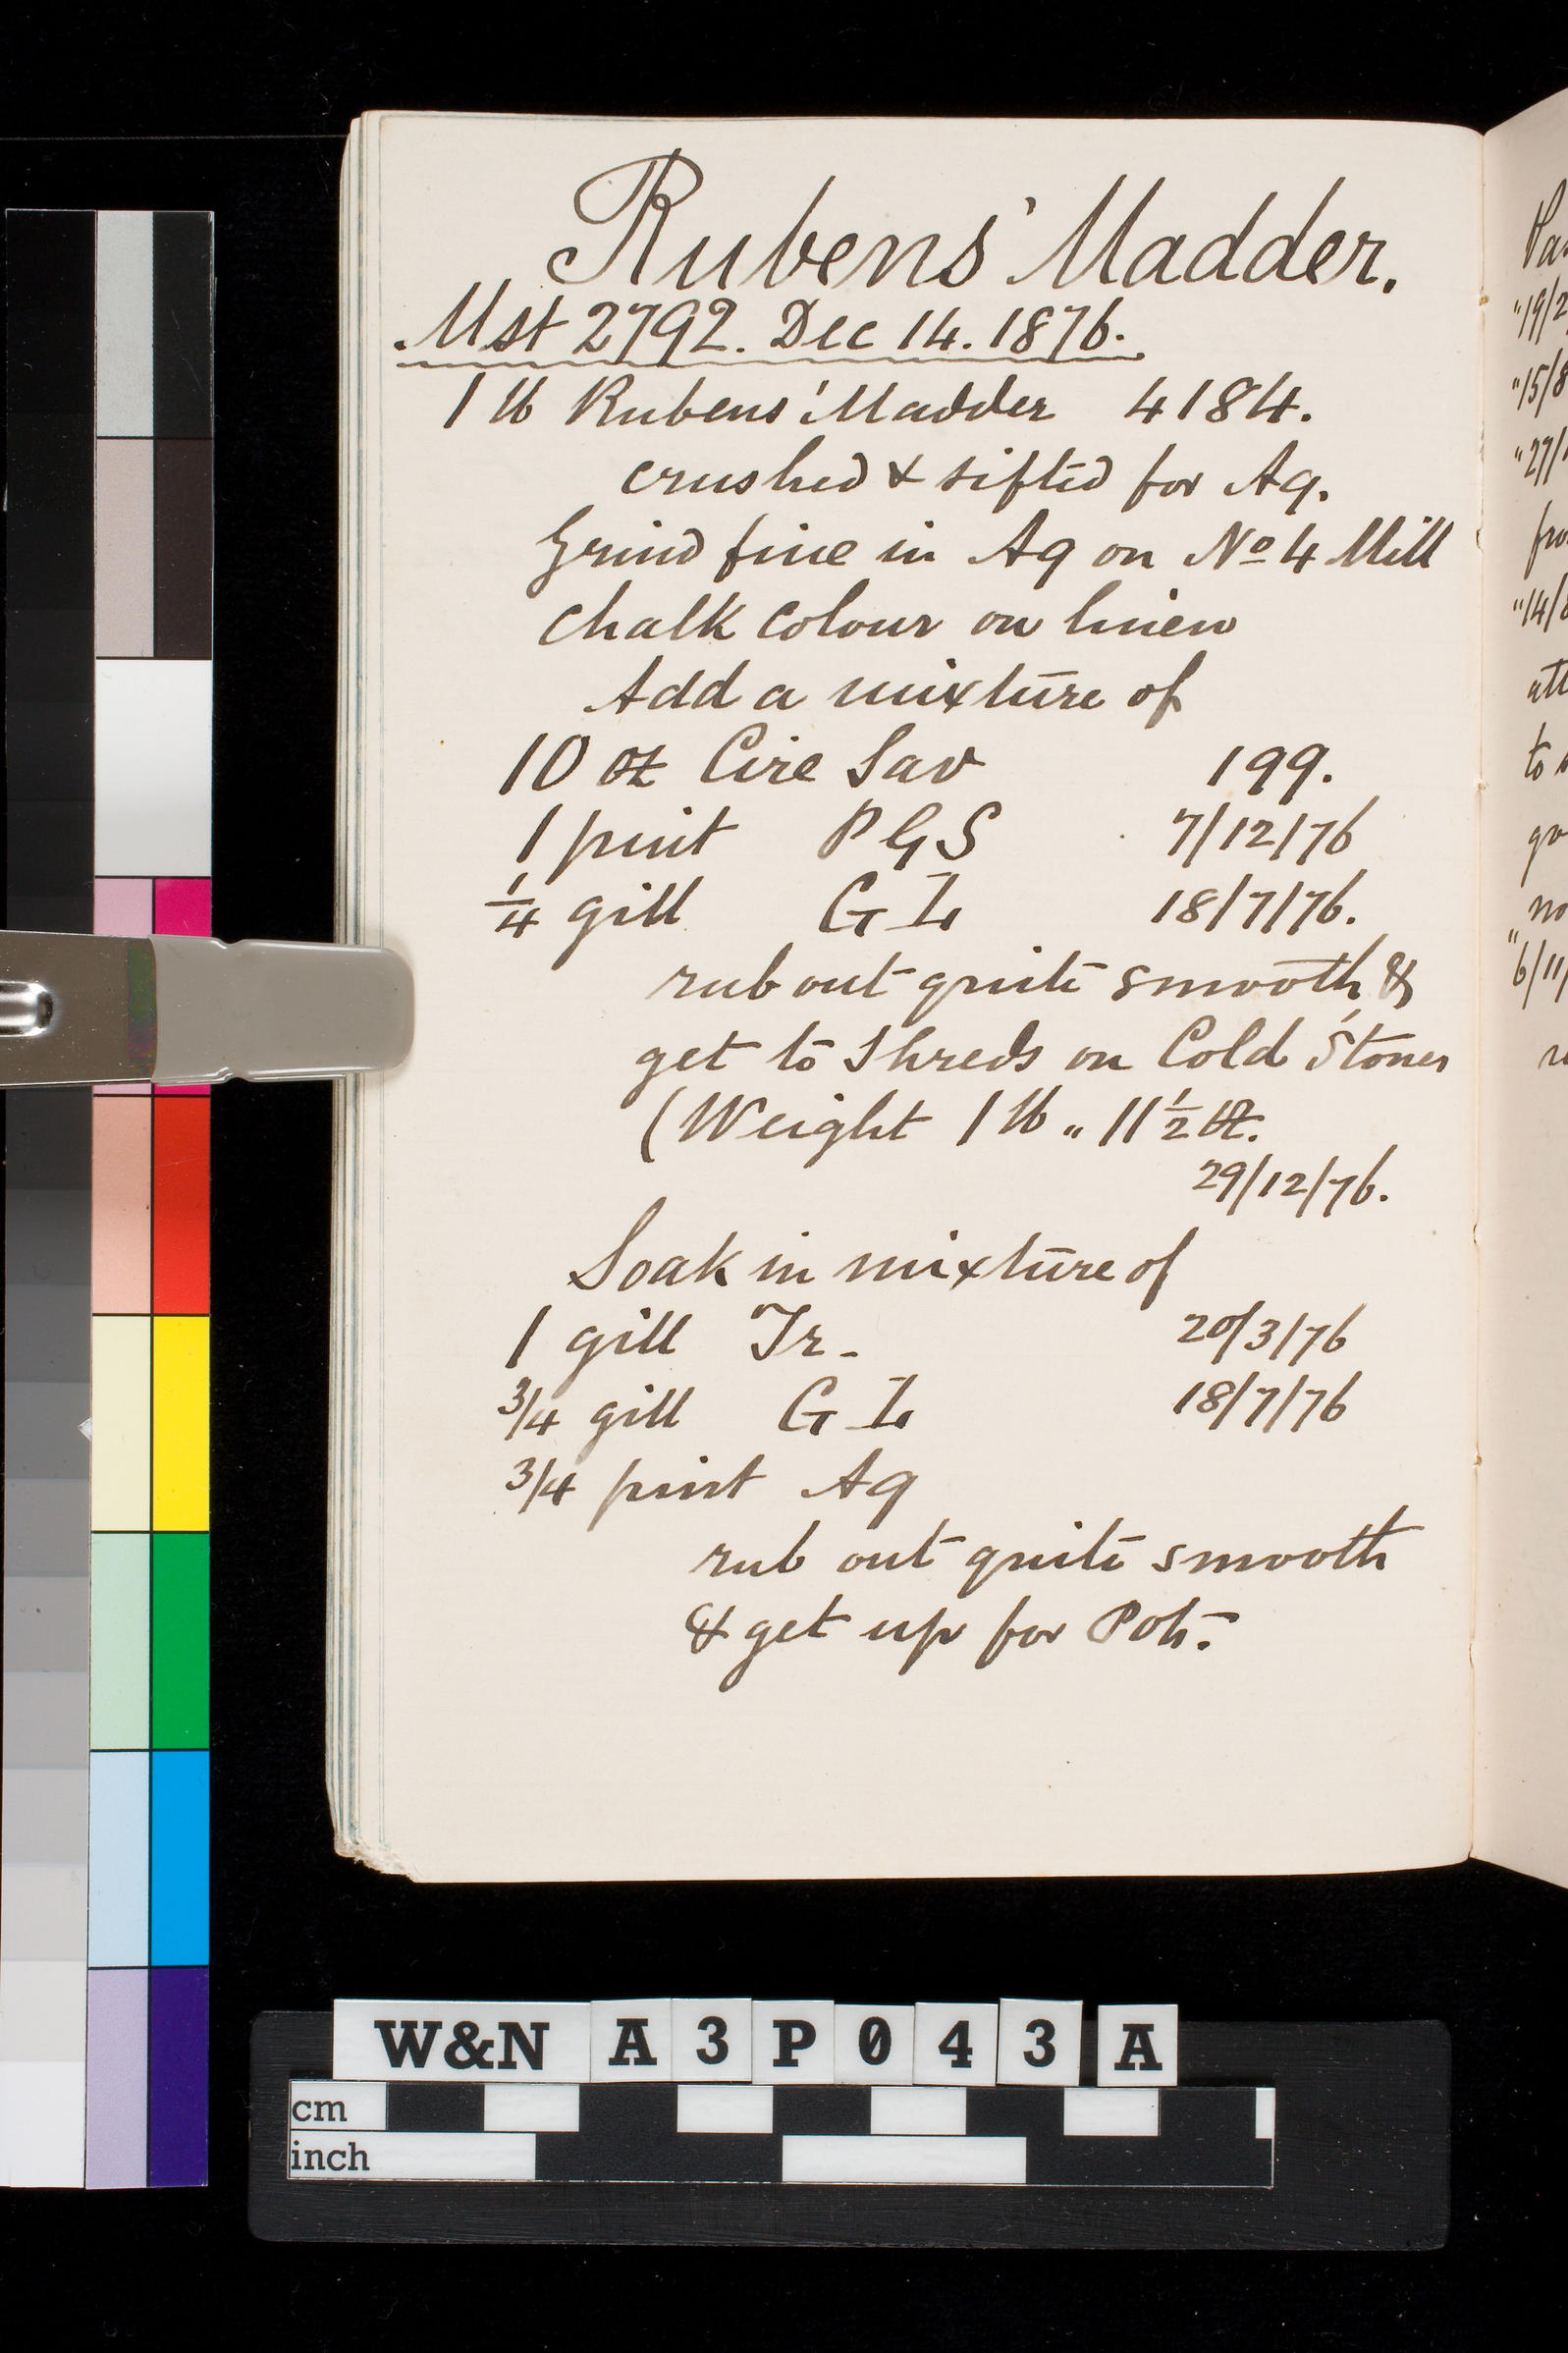 Rubens' Madder.
Mst 2792. Dec 14. 1876.
1 lb Rubens' Madder 4184.
crushed & sifted for Aq.
Grind fine in Aq on No 4 Mill
Chalk colour on linen
Add a mixture of
10 oz Cire Sav 199.
1 pint P G S 7/12/76
1/4 gill G L 18/7/76.
rub out quite smooth &
get to Shreds on Cold Stones
(Weight 1 lb " 11 1/2 oz.
29/12/76.
Soak in mixture of
1 gill Tr - 20/3/76
3/4 gill G L 18/7/76
3/4 pint Aq
rub out quite smooth
& get up for Pot.
"19/2
"15/8
"27/
"14/8
to
no
"6/11/
W&N A 3 P 0 4 3 A
cm
inch